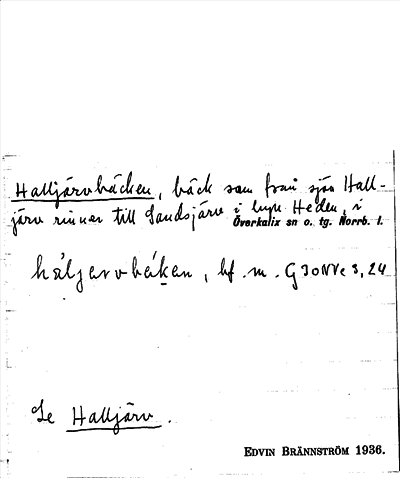 Halljärvbäcken, bäck som från sjön Hall-
järv rinner till Sandsjärv i byn Heden, i
Överkalix sn o. tg. Norrb. l.
hàljærvbékan, bf. m. G30NVe3,24
Se Halljärv.
EDVIN BRÄNNSTRÖM 1936.